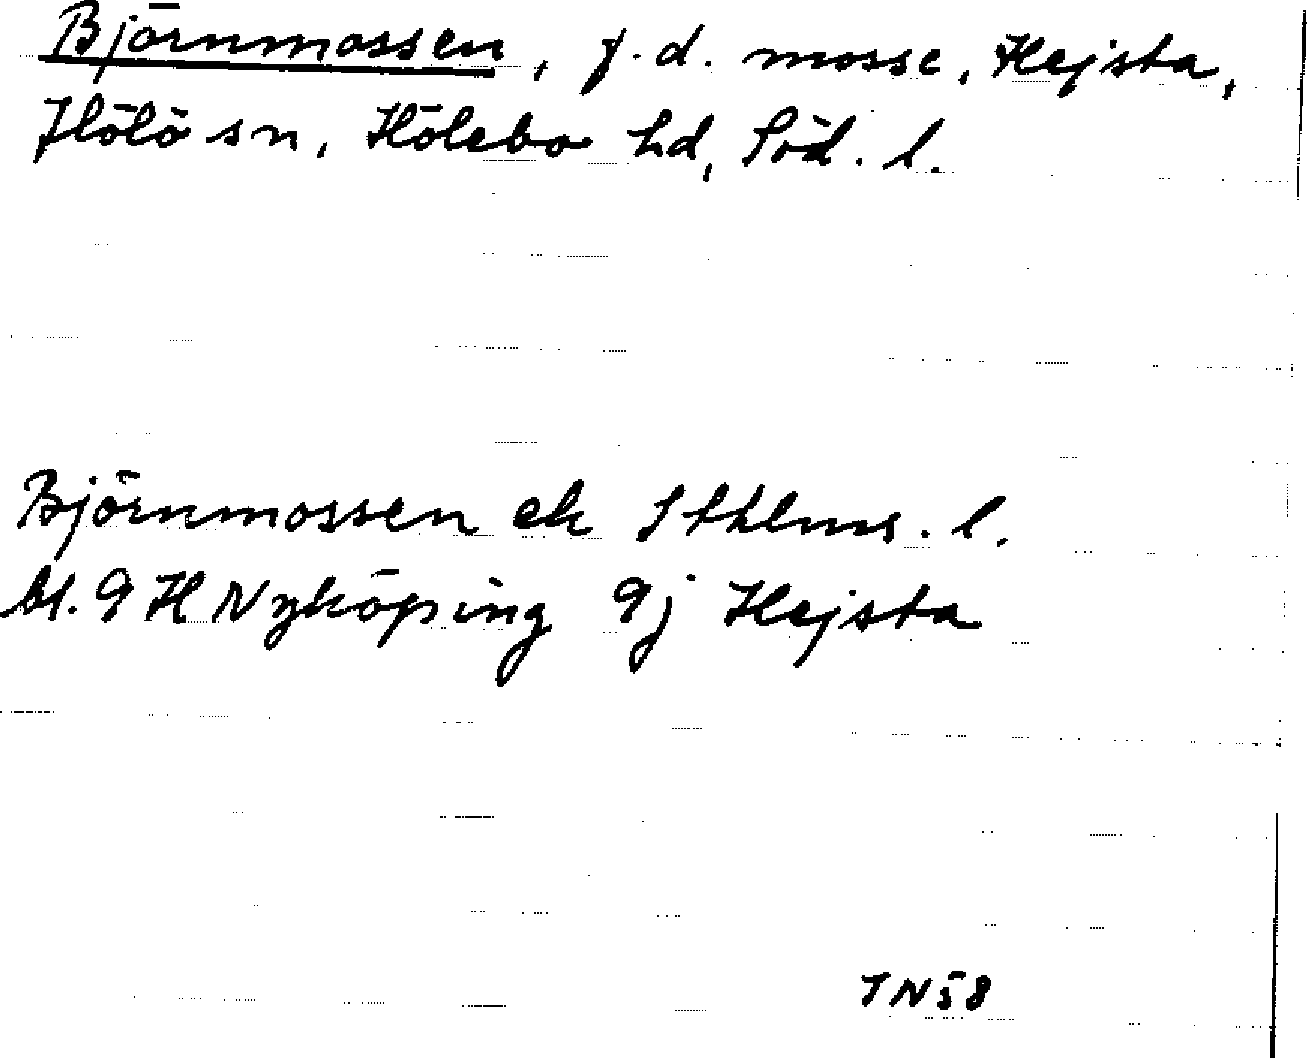 Björnmossen, f.d. mosse, Hejsta,
Hölö sn, Hölebo hd, Söd. l.
Björnmossen ek Sthlms. l.
bl. 9 H Nyköping 9j Hejsta
TN58